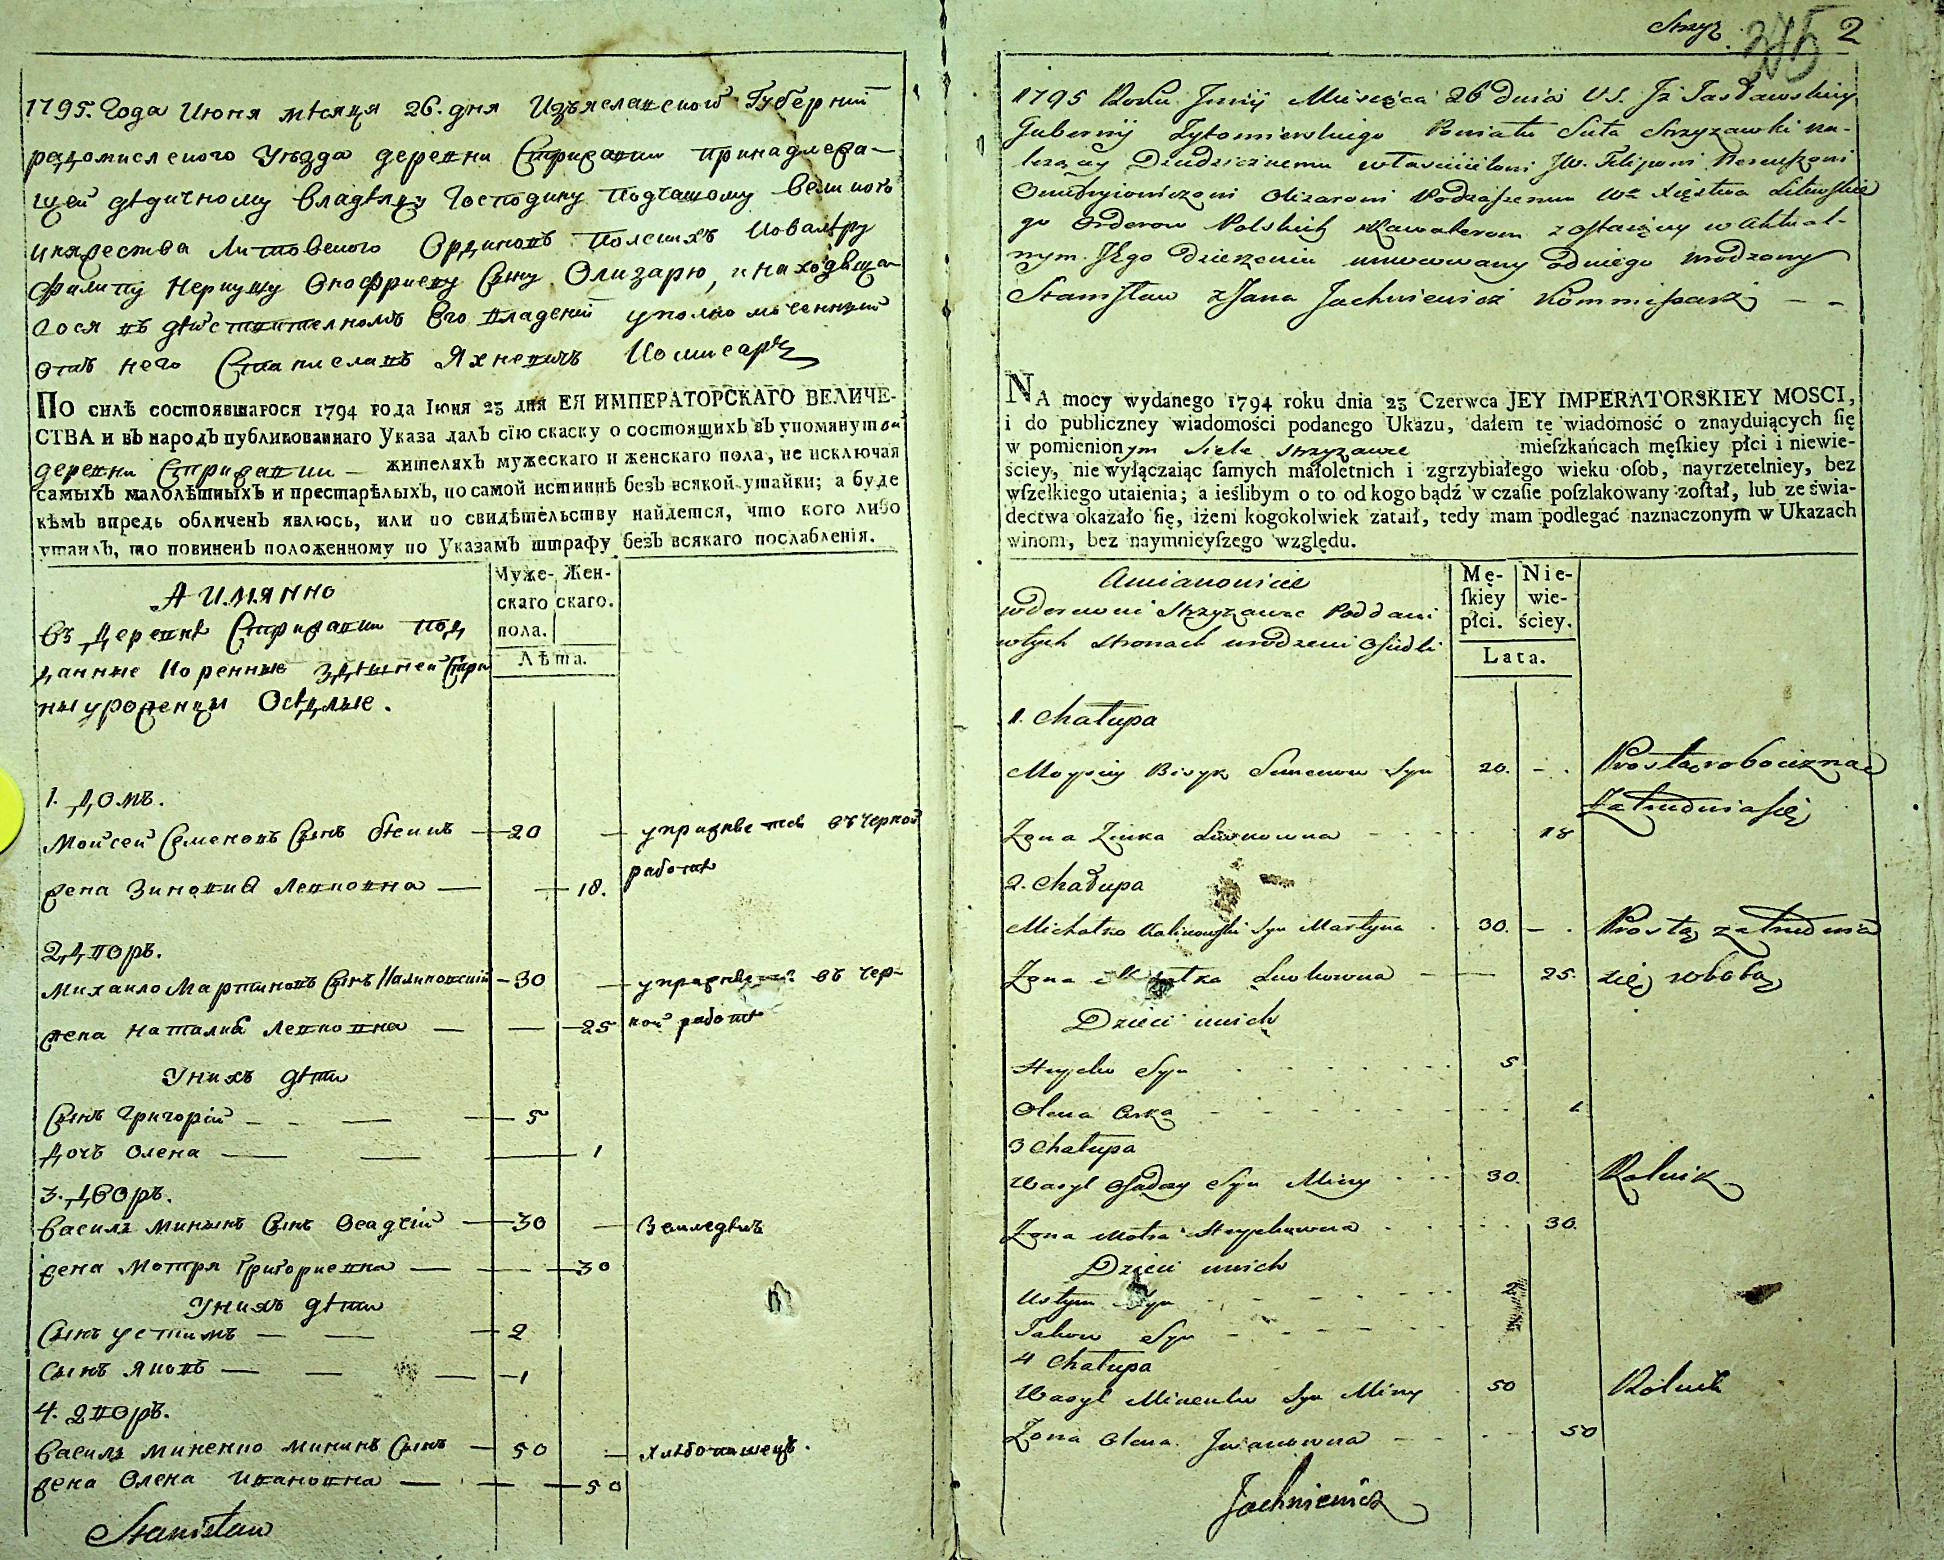 1795. Года Июня мѣсяца 26. дня Изъяславской Губерніи
радомислского Уѣзда деревни Стрижавки принадлежа-
щей дѣдичному владѣлцу Господину Подчашому великого
княжества Литовского Ординовъ полскихъ Ковалѣру
Филипу Нериушу Онофриеву Сыну Олизарю, и находяща-
гося въ дѣйствителномъ Его владеніи уполномоченный
отъ него Станиславъ Яхневичъ Комисаръ
ПО силѣ состоявшагося 1794 года Іюня 23 дня ЕЯ ИМПЕРАТОРСКАГО ВЕЛИЧЕ-
СТВА и въ народъ публикованнаго Указа далъ сію скаску о состоящихъ въ упомянутой
деревни Стрижавки — жителяхъ мужескаго и женскаго пола, не исключая
самыхъ малолѣтныхъ и престарѣлыхъ, по самой истиннѣ безъ всякой утайки; а буде
кѣмъ впредь обличенъ явлюсь, или по свидѣтельству найдется, что кого либо
утаилъ, то повиненъ положенному по Указамъ штрафу безъ всякаго послабленія.
А имянно
въ деревнѣ Стрижавки под
данные коренные здѣшней Сторо
ны уроженцы Осѣдлые.
Муже-скаго пола. Жен-скаго.
Лѣта.
1. Домъ.
Моисей Семеновъ Сынъ — 20 — упражняется въ черной
работѣ
жена Зиновия Левковна — 18.
2. Дворъ.
Михаило Мартиновъ Сынъ Калиновский — 30 — въ чер-
ной работѣ
жена Наталия Левковна — — 25
Униxъ дѣти
Сынъ Григорій — 5
Дочъ Олена — 1
3. Дворъ.
Василь Мининъ Сынъ Осадчій — 30 — Земледѣлъ
жена Мотря Григориевна — — 30
Унихъ дѣти
Сынъ Устимъ — 2
Сынъ Яковъ — 1
4. Дворъ.
Василь Миненко Мининъ Сынъ — 50 — хлѣбопашецъ.
жена Олена Ивановна — — 50
Stanisław
Strzyż. 345 2
1795 Roku Junij Miesięca 26 dnia V.S. Iż Jasławskiey
Gubernij Żytomierskiego Powiatu Sieła Strzyzawki na-
leżący Dziedzicznemu właścicielowi JW. Filipowi Nereuszowi
Onufryiowiczowi Olizarowi Podczaszemu Wo Xięstwa Litewskie
go Orderow Polskich Kawalerom zostaiący w Aktual-
nym JEgo Dzierżeniu umocowany od niego urodzony
Stanisław z Jana Jachniewicz Kommissarz — —
NA mocy wydanego 1794 roku dnia 23 Czerwca JEY IMPERATORSKIEY MOSCI,
i do publiczney wiadomości podanego Ukazu, dałem tę wiadomość o znayduiących ſię
w pomienionym Siele Strzyzawce mieſzkańcach męſkiey płci i niewie-
ściey, nie wyłączaiąc ſamych małoletnich i zgrzybiałego wieku oſob, nayrzetelniey, bez
wſzelkiego utaienia; a ieślibym o to od kogo bądź w czaſie poſzlakowany zoſtał, lub ze świa-
dectwa okazało ſię, iżeni kogokolwiek zataił, tedy mam podlegać naznaczonym w Ukazach
winom, bez naymnieyſzego względu.
Amianowicie
w derewni Strzyzawce Poddani
w tych Stronach urodzeni Osiedli
Mę-ſkiey płci. Nie-wie-ściey.
Lata.
1. Chałupa
Moysiey Bisyk Semenow Syn 20. — . Prostą robocizną
Zatrudnia się
Zona Zinka Lewkowna 18
2. Chałupa
Michałko Kalinowski Syn Martyna 30. — . Prostą zatrudnia
Zona Lewkowna — — 25. się robotą
Dzieci unich
Hryćko Syn 5
Olena Corka 1
3 Chałupa
Wasyl Osadczy Syn Miny 30. Rolnik
Zona Motra Hryhorowna 30.
Dzieci unich
Ustym Syn 2
Jakow Syn
4 Chałupa
Wasyl Minenko Syn Miny 50 Rolnik
Zona Olena Iwanowna 50
Jachniewicz